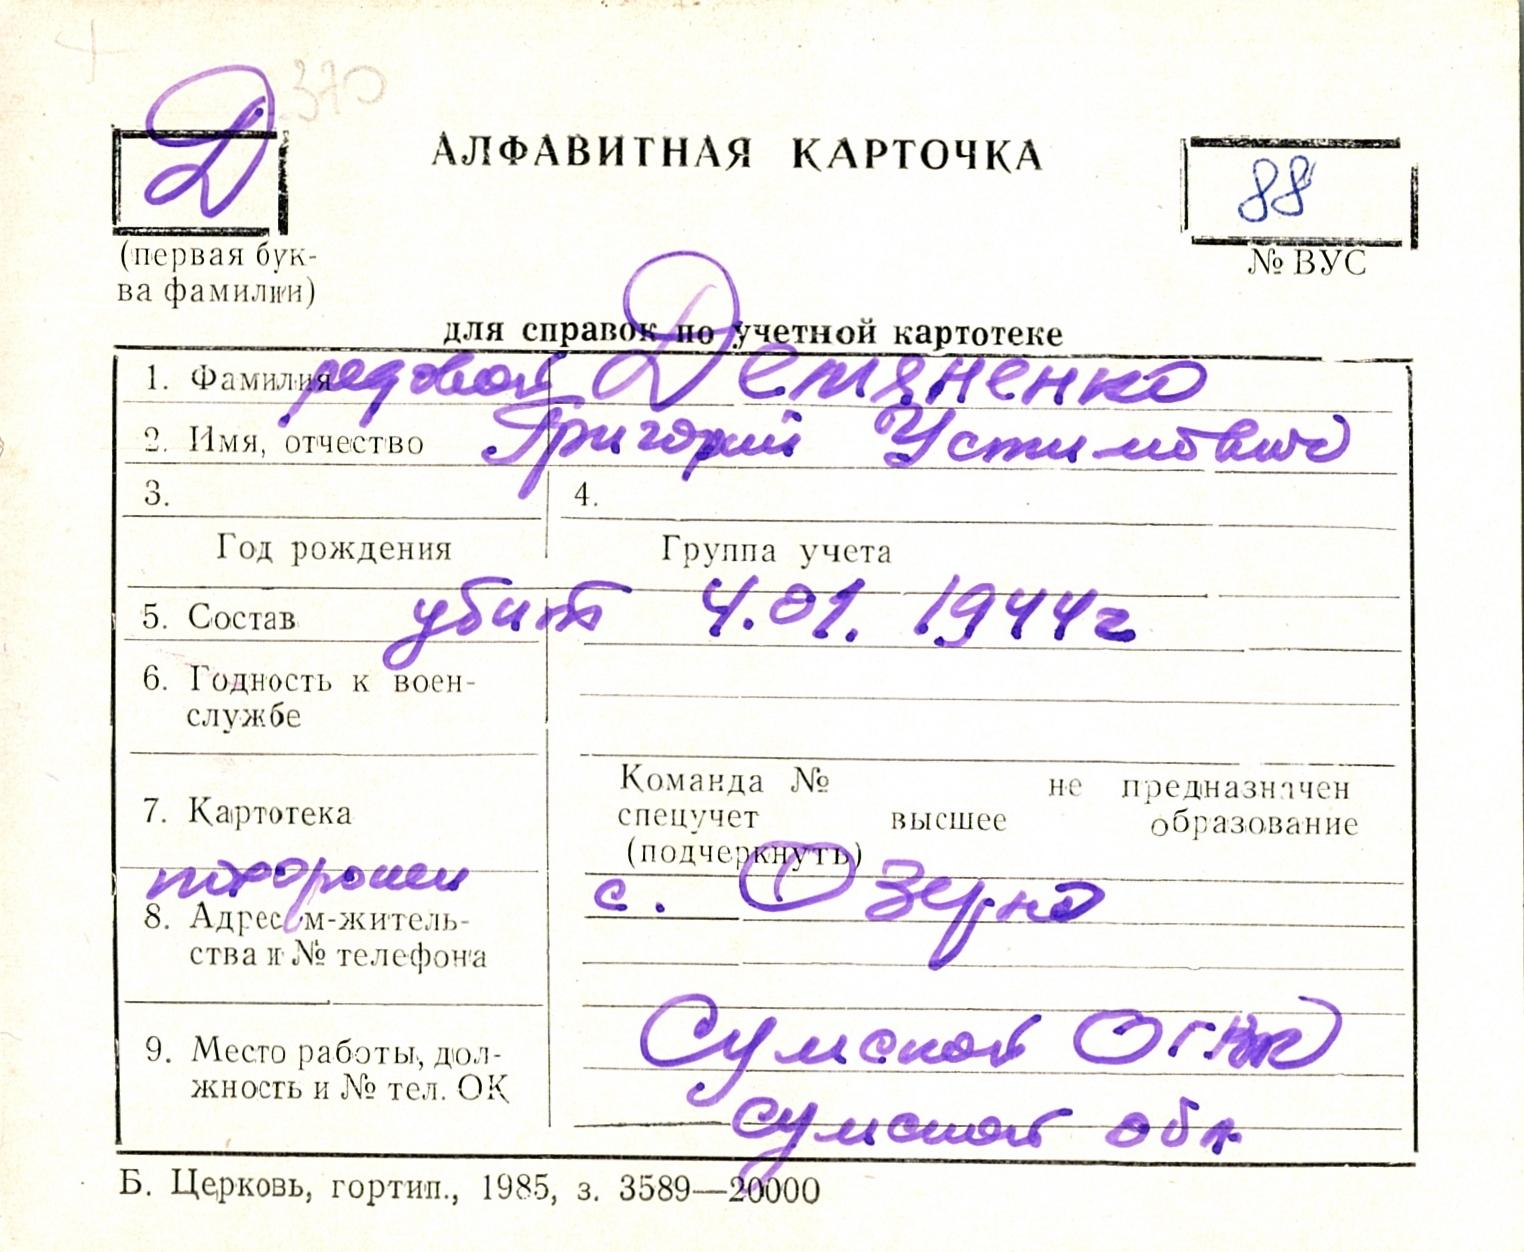 370
Д
АЛФАВИТНАЯ КАРТОЧКА
88
(первая бук-
ва фамилии)
№ ВУС
для справок по учетной картотеке
1. Фамилия рядовой Демяненко
2. Имя, отчество Григорий Устимович
3.
4.
Год рождения
Группа учета
5. Состав убит 4.01.1944г
6. Годность к воен-
службе
7. Картотека
Команда № не предназначен
спецучет высшее образование
(подчеркнуть)
похоронен с. Озерно
8. Адрес м-житель-
ства и № телефона
9. Место работы, дол-
жность и № тел. ОК
Сумской ОГВК
сумской обл.
Б. Церковь, гортип., 1985, з. 3589—20000